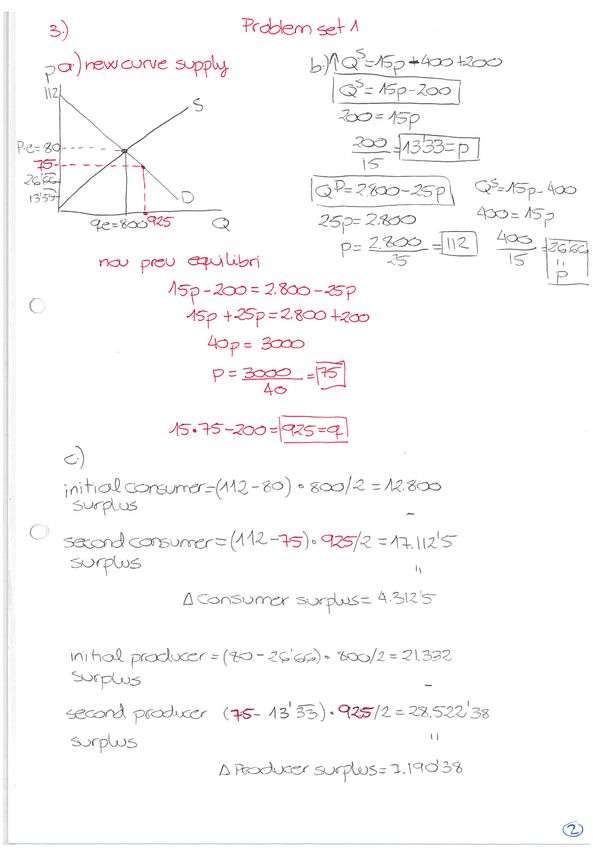 Problem set 1
3.)
a.) new curve supply
P
112
S
Pe=80
75
26'66
13'33
D
qe=800 925 Q
b.) ↑ Q^S=15p-400+200
Q^S=15p-200
200=15p
200/15=13'33=p
Q^D=2.800-25p
25p=2.800
p=2.800/25=112
Q^S=15p-400
400=15p
400/15=26'66
"
P
nou preu equilibri
15p-200=2.800-25p
15p+25p=2.800+200
40p=3000
p=3000/40=75
15·75-200=925=q
c.)
initial consumer=(112-80)·800/2=12.800
surplus
-
second consumer=(112-75)·925/2=17.112'5
surplus
"
Δ Consumer surplus=4.312'5
initial producer=(80-26'66)·800/2=21.332
surplus
-
second producer (75-13'33)·925/2=28.522'38
surplus
"
Δ Producer surplus=7.190'38
2